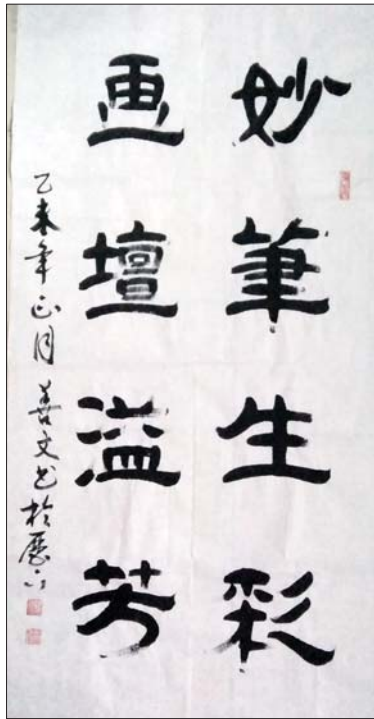 妙筆生彩
画壇溢芳
乙未年正月 善文书於歷下